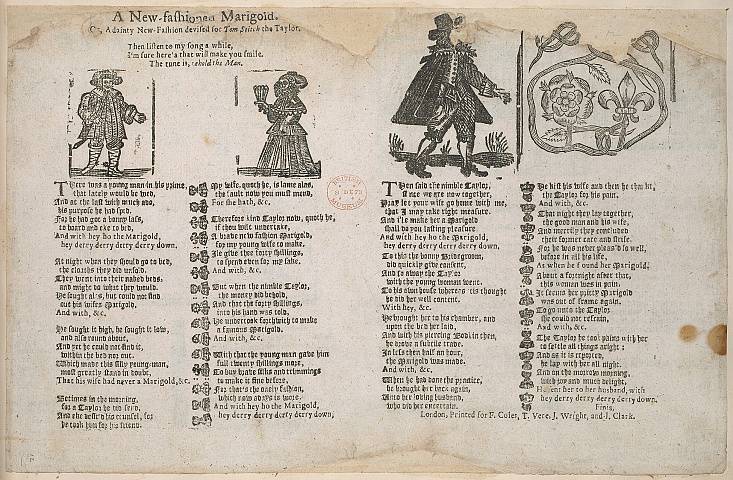 A New-fashioned Marigold.
Or, A dainty New-Fashion devised for Tom Stitch the Taylor.
Then listen to my song a while,
I'm sure here's that will make you smile.
The tune is, ehold the Man.
There was a young man in his prime,
that lately would be wed,
And at the last with much ado,
his purpose he had sped.
For he had got a bonny lass,
to board and eke to bed,
And with hey ho the Marigold,
hey derry derry derry derry down.
At night when they should go to bed,
the cloaths they did unfold,
They went into their naked beds,
and might do what they would.
He sought als, but could not find
out his wifes Marigold.
And with, &c.
He sought it high, he sought it low,
and also round about,
And yet he could not find it,
within the bed nor out.
Which made this silly young-man,
most greatly stand in doubt,
That his wife had never a Marigold, &c.
Betimes in the morning,
for a Taylor he did send,
And eke desir'd his counsel, for
he took him for his friend.
My wife, quoth he, is lame alas,
the fault now you must mend,
For she hath, &c.
Therefore kind Taylor now, quoth he,
if thou wilt undertake,
A brave new fashion Marigold,
for my young wife to make.
Ile give thee forty shillings,
to spend even for my sake.
And with, &c.
But when the nimble Taylor,
the money did behold,
And that the forty shillings,
into his hand was told,
He undertook forthwith to make
a famous Marigold.
And with, &c.
With that the young man gave him
full twenty shillings more,
To buy have silks and trimmings
to make it fine before.
For that's the onely fashion,
which now adays is wore.
And with hey ho the Marigold,
hey derry derry derry derry down,
BRITISH MUSEUM
Then said the nimble Taylor,
since we are now together,
Pray let your wife go home with me,
that I may take right measure.
And i'le make her a Marigold
shall do you lasting pleasure
And with hey ho the Marigold,
hey derry derry derry derry down,
To this the bonny Bridegroom,
did quickly give consent,
And so away the Taylor
with the young woman went.
To his own house whereto tis thought
he did her well content.
With hey, &c.
He brought her to his chamber, and
upon the bed her laid,
And with his piercing Bodkin then,
he drove a subtile trade.
In less then half an hour,
the Marigold was made.
And with, &c.
When he had done the practice,
he brought her back again,
Unto her loving husband,
who did her entertain.
He kist his wife and then he thankt,
the Taylor for his pain.
And with, &c.
That night they lay together,
the good man and his wife,
And merrily they concluded
their former care and strife.
For he was never pleas'd so well,
before in all his life,
As when he found her Marigold,
About a fortnight after that,
this woman was in pain.
It seems her pritty Marigold
was out of frame again.
To go unto the Taylor
she could not refrain,
And with, &c.
The Taylor he took pains with her
to settle all things aright:
And as it is reported,
he lay with her all night.
And on the morrow morning,
with joy and much delight,
He sent her to her husband, with
hey derry derry derry derry down.
Finis.
London, Printed for F. Coles, T. Vere, J. Wright, and J. Clark.